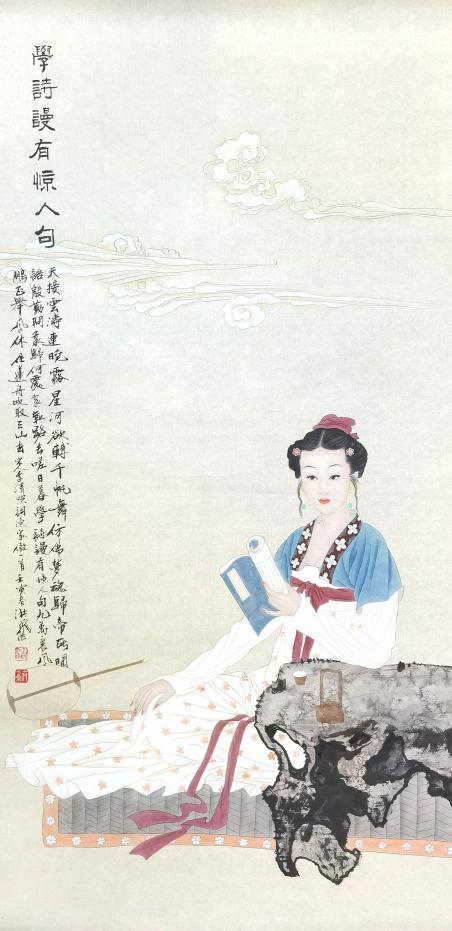 學詩謾有惊人句
天接雲濤連曉霧星河欲轉千帆舞仿佛夢魂歸帝所聞
語殷勤問我歸何處我報路長嗟日暮學詩謾有惊人句九萬里風
鵬正舉風休住蓬舟吹取三山去宋李清照詞漁家傲一首壬寅春洪